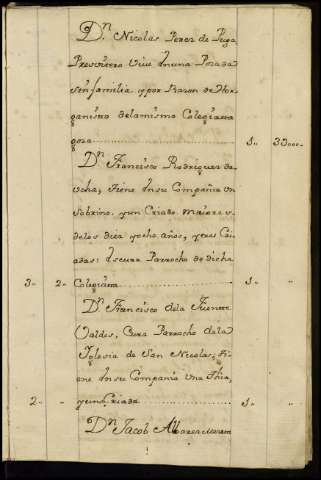 Dn. Nicolas Perez de Puga
Presvitero Vive en una Posada
sin familia y por Razon de Hor-
ganistro de la misma Colegiata
goza 1.. 3300..
Dn. Francisco Rodriguez de
Ocha, tiene en su Compañia un
Sobrino, y un Criado maiores
de los diez y ocho años, y tres Cri-
adas: es cura Parrocho de dicha
3.. 2.. Colegiata 1..
Dn. Francisco de la Fuente
Valdes, Cura Parrocho de la
Yglesia de San Nicolas, ti-
ene en su Compania una thia,
2.. .. y una Criada 1..
Dn. Jacob Albarez